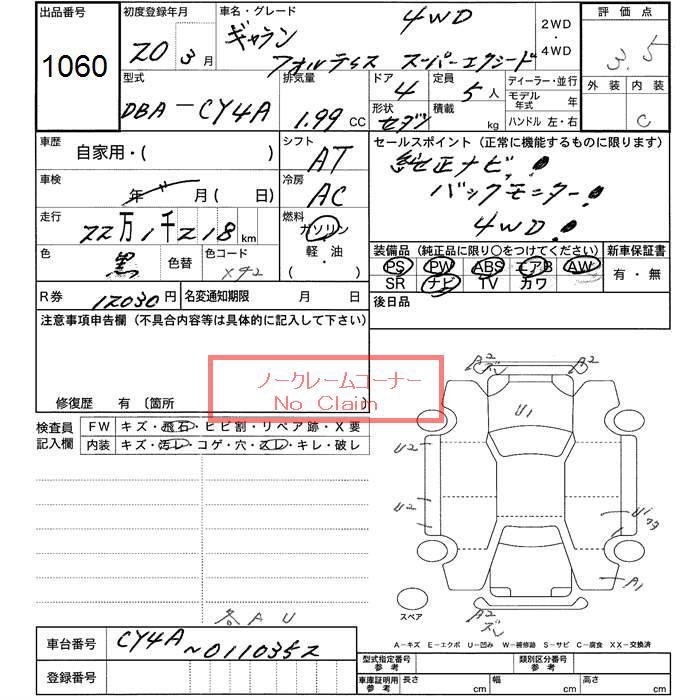 出品番号
1060
初度登録年月
20 3 月
車名・グレード
4WD
ギャラン
フォルティス スーパーエクシード
2WD
・
4WD
評価点
3.5
外装 内装
C
型式
DBA-CY4A
排気量
1.99 CC
ドア
4
定員
5 人
形状
セダン
積載
kg
ディーラー・並行
モデル年式 年
ハンドル 左・右
車歴
自家用・( )
シフト
AT
セールスポイント (正常に機能するものに限ります)
純正ナビ!
バックモニター!
4WD!
車検
年 月 ( 日)
冷房
AC
走行
22万1千218 km
燃料
ガソリン
軽・油
( )
色
黒
色替
色コード
X42
装備品 (純正品に限り○をつけてください)
PS PW ABS エアB AW
SR ナビ TV カワ
新車保証書
有・無
R券
12030円
名変通知期限 月 日
後日品
注意事項申告欄 (不具合内容等は具体的に記入して下さい)
ノークレームコーナー
No Claim
修復歴 有 〔箇所
検査員
記入欄
FW キズ・飛石・ヒビ割・リペア跡・X要
内装 キズ・汚レ・コゲ・穴・スレ・キレ・破レ
A2
ズレ
A2
U1
U2
U2
U1
A1
スペア
A2
ズレ
各 A U
A-キズ E-エクボ U-凹み W-補修跡 S-サビ C-腐食 XX-交換済
車台番号
CY4A~0110352
登録番号
型式指定番号
参考
類別区分番号
参考
車庫証明用
参考
長さ cm
幅 cm
高さ cm